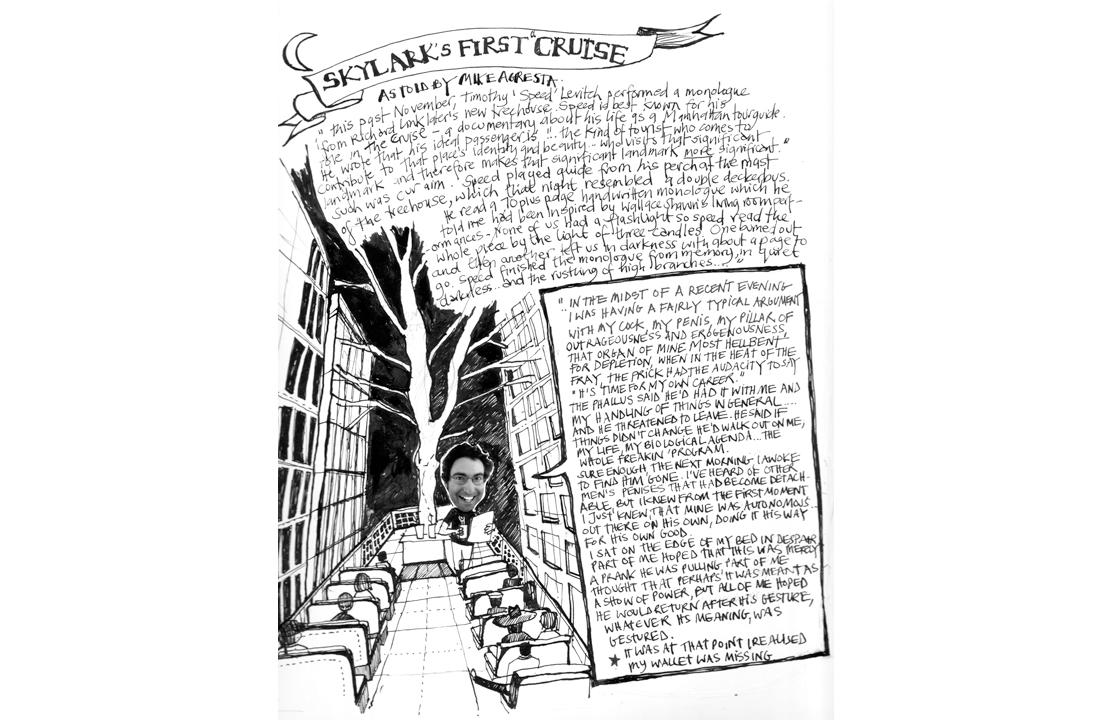 SKYLARK'S FIRST "CRUISE
AS TOLD BY MIKE AGRESTA.
"This past November, Timothy 'Speed' Levitch performed a monologue
from Richard Linklater's new treehouse. Speed is best known for his
role in The Cruise - a documentary about his life as a Manhattan tourguide.
He wrote that his ideal passenger is "... the kind of tourist who comes to
contribute to that place's identity and beauty.. who visits that significant
landmark and therefore makes that significant landmark more significant."
Such was our aim. Speed played guide from his perch at the mast
of the treehouse, which that night resembled a double decker bus.
He read a 10 plus page handwritten monologue which he
told me had been inspired by Wallace Shawn's living room perf-
ormances. None of us had a flashlight so speed read the
whole piece by the light of three candles. One burned out
and then another left us in darkness with about a page to
go. Speed finished the monologue from memory, in quiet
darkness... and the rustling of high branches...."
"IN THE MIDST OF A RECENT EVENING
I WAS HAVING A FAIRLY TYPICAL ARGUMENT
WITH MY COCK, MY PENIS, MY PILLAR OF
OUTRAGEOUSNESS AND EROGENOUSNESS,
THAT ORGAN OF MINE MOST HELLBENT
FOR DEPLETION, WHEN IN THE HEAT OF THE
FRAY, THE PRICK HAD THE AUDACITY TO SAY
"IT'S TIME FOR MY OWN CAREER."
THE PHALLUS SAID HE'D HAD IT WITH ME AND
MY HANDLING OF THINGS IN GENERAL....
AND HE THREATENED TO LEAVE. HE SAID IF
THINGS DIDN'T CHANGE HE'D WALK OUT ON ME,
MY LIFE, MY BIOLOGICAL AGENDA... THE
WHOLE FREAKIN' PROGRAM.
SURE ENOUGH, THE NEXT MORNING I AWOKE
TO FIND HIM GONE. I'VE HEARD OF OTHER
MEN'S PENISES THAT HAD BECOME DETACH-
ABLE, BUT I KNEW FROM THE FIRST MOMENT
I JUST KNEW, THAT MINE WAS AUTONOMOUS..
OUT THERE ON HIS OWN, DOING IT HIS WAY
FOR HIS OWN GOOD.
I SAT ON THE EDGE OF MY BED IN DESPAIR,
PART OF ME HOPED THAT THIS WAS MERELY
A PRANK HE WAS PULLING PART OF ME
THOUGHT THAT PERHAPS IT WAS MEANT AS
A SHOW OF POWER, BUT ALL OF ME HOPED
HE WOULD RETURN AFTER HIS GESTURE,
WHATEVER ITS MEANING, WAS
GESTURED.
★ IT WAS AT THAT POINT I REALISED
MY WALLET WAS MISSING